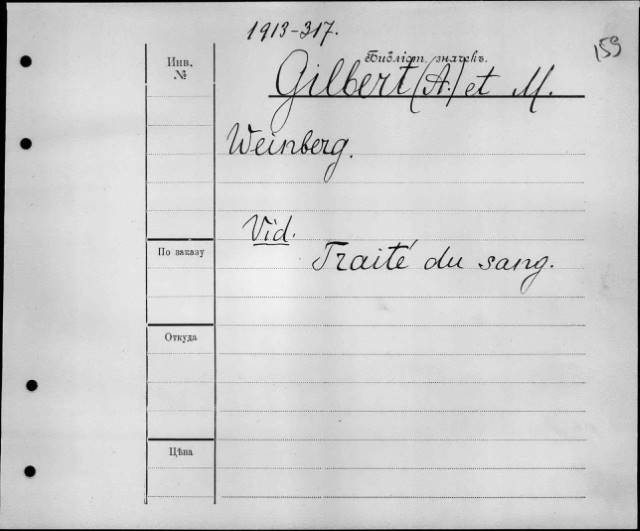 1913-317.
159
Инв.
№
Библіот. значекъ.
Gilbert (A.) et M.
Weinberg.
Vid.
По заказу
Traité du sang.
Откуда
Цѣна